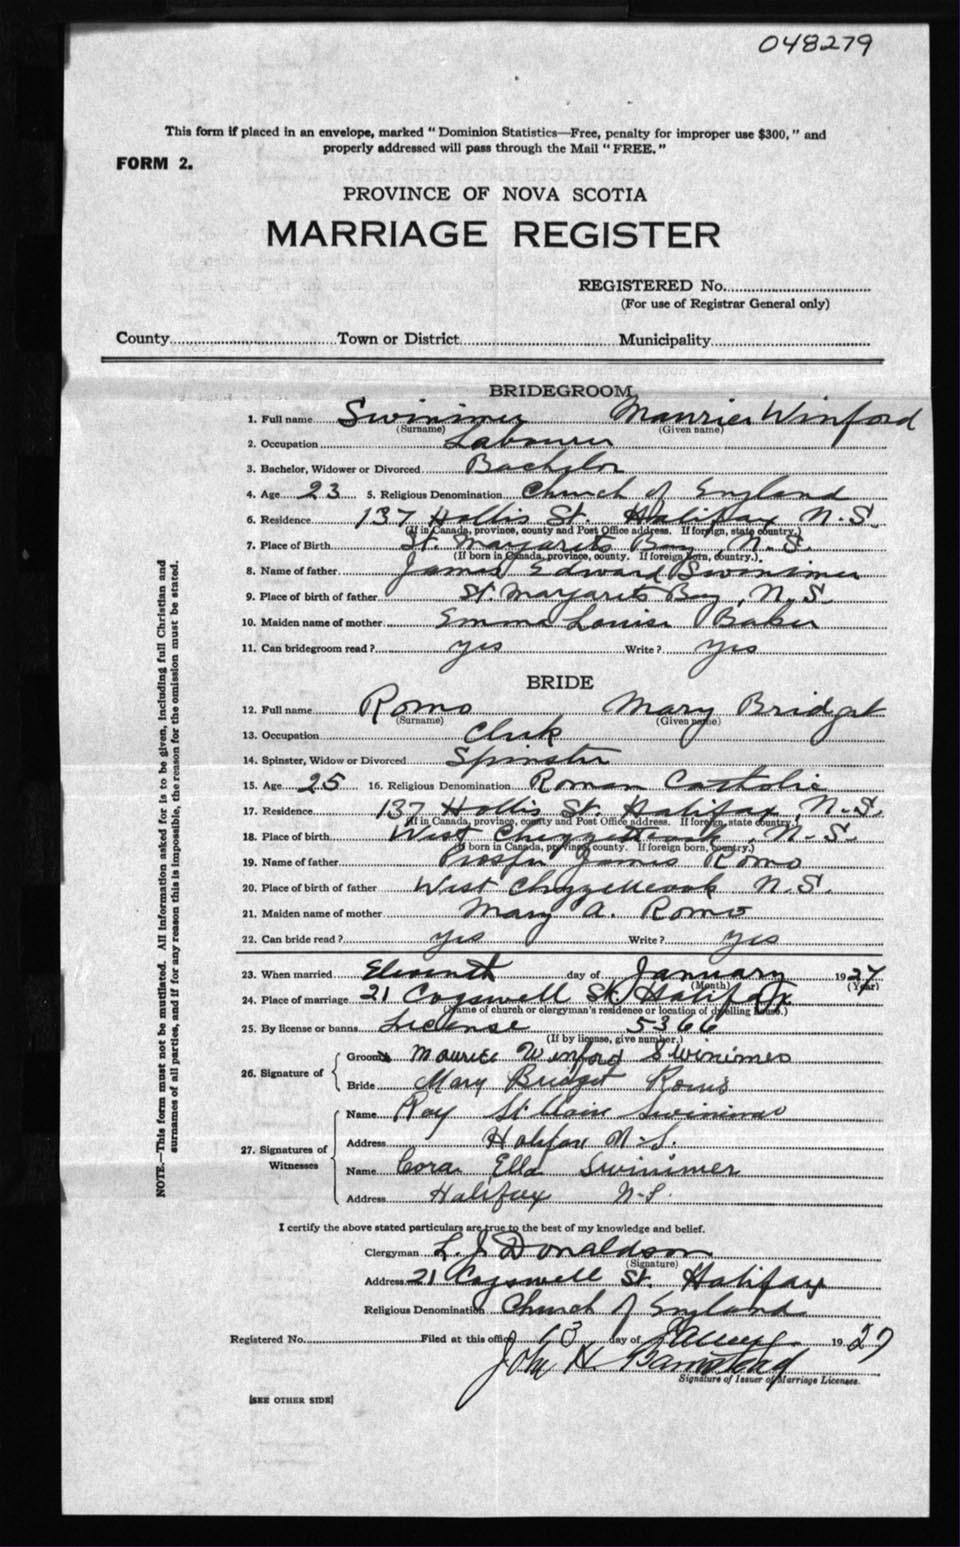 048279
This form if placed in an envelope, marked "Dominion Statistics—Free, penalty for improper use $300," and
properly addressed will pass through the Mail "FREE."
FORM 2.
PROVINCE OF NOVA SCOTIA
MARRIAGE REGISTER
REGISTERED No.
(For use of Registrar General only)
County Town or District Municipality
BRIDEGROOM
1. Full name Swinimer Maurice Winford
(Surname) (Given name)
2. Occupation Labourer
3. Bachelor, Widower or Divorced Bachelor
4. Age 23 5. Religious Denomination Church of England
6. Residence 137 Hollis St. Halifax N.S.
(If in Canada, province, county and Post Office address. If foreign, state country.)
7. Place of Birth St. Margarets Bay, N.S.
(If born in Canada, province, county. If foreign born, country.)
8. Name of father James Edward Swinimer
9. Place of birth of father St. Margarets Bay, N.S.
10. Maiden name of mother Emma Louise Baker
11. Can bridegroom read? yes Write? yes
BRIDE
12. Full name Romo Mary Bridget
(Surname) (Given name)
13. Occupation Clerk
14. Spinster, Widow or Divorced Spinster
15. Age 25 16. Religious Denomination Roman Catholic
17. Residence 137 Hollis St. Halifax, N.S.
(If in Canada, province, county and Post Office address. If foreign, state country.)
18. Place of birth West Chezzetcook, N.S.
(If born in Canada, province, county. If foreign born, country.)
19. Name of father Prosper James Romo
20. Place of birth of father West Chezzetcook N.S.
21. Maiden name of mother Mary A. Romo
22. Can bride read? yes Write? yes
23. When married Eleventh day of January 1927
(Month) (Year)
24. Place of marriage 21 Cogswell St. Halifax
(Name of church or clergyman's residence or location of dwelling house.)
25. By license or banns License 5366
(If by license, give number.)
26. Signature of
Groom Maurice Winford Swinimer
Bride Mary Bridget Romo
27. Signatures of Witnesses
Name Roy St. Claire Swinimer
Address Halifax N.S.
Name Cora Ella Swinimer
Address Halifax N.S.
I certify the above stated particulars are true to the best of my knowledge and belief.
Clergyman L. J. Donaldson
(Signature)
Address 21 Cogswell St. Halifax
Religious Denomination Church of England
Registered No. Filed at this office 13 day of January 1927
John H Barnstead
Signature of Issuer of Marriage Licenses.
[SEE OTHER SIDE]
NOTE.—This form must not be mutilated. All information asked for is to be given, including full Christian and
surnames of all parties, and if for any reason this is impossible, the reason for the omission must be stated.